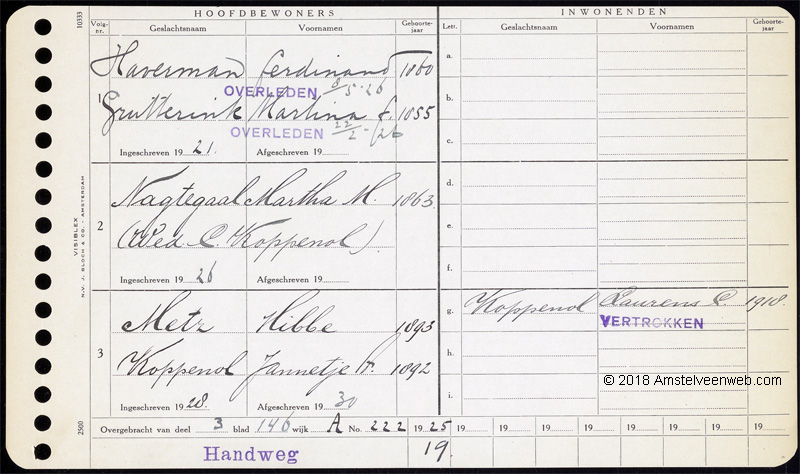 HOOFDBEWONERS
INWONENDEN
10333
Volg-nr.
Geslachtsnaam
Voornamen
Geboorte-jaar
Lett.
Geslachtsnaam
Voornamen
Geboorte-jaar
1
Haverman Ferdinand 1860
OVERLEDEN 8/5-26
Grutterink Martina f. 1855
OVERLEDEN 22/2-/26
Ingeschreven 1921. Afgeschreven 19
2
Nagtegaal Martha M. 1863
(Wed. C. Koppenol)
Ingeschreven 1926 Afgeschreven 19
3
Metz Hibbe 1893
Koppenol Jannetje 1892
Ingeschreven 1928. Afgeschreven 1930
a.
b.
c.
d.
e.
f.
g. Koppenol Laurens C. 1918.
VERTROKKEN
h.
i.
© 2018 Amstelveenweb.com
VISIBLEX
N.V. J. BLOCH & CO. - AMSTERDAM
2500
Overgebracht van deel 3 blad 146 wijk A No. 222 1925 19 19 19 19 19 19 19
Handweg 19.